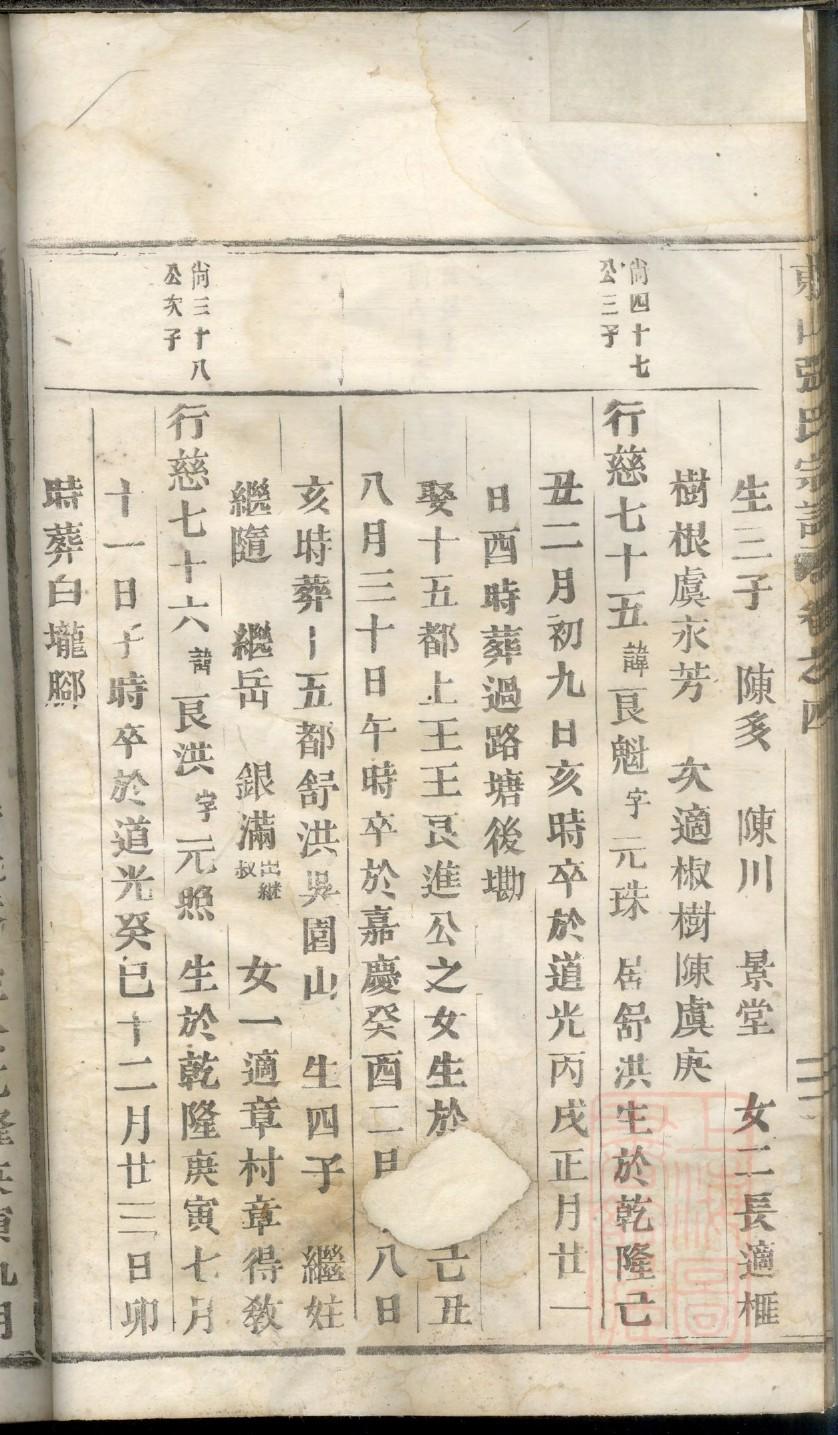 生三子　陳多　陳川　景堂　女二長適榧
樹根虞永芳　次適椒樹陳虞庚
尙四十七
公三子
行慈七十五諱良魁字元珠　居舒洪生於乾隆己
丑二月初九日亥時卒於道光丙戌正月廿一
日酉時葬過路塘後墈
娶十五都上王王良進公之女生於 己丑
八月三十日午時卒於嘉慶癸酉二月 八日
亥時葬十五都舒洪吳園山　生四子　繼妵
繼隨　繼岳　銀滿出継叔　女一適章村章得教
尙三十八
公次子
行慈七十六諱良洪字元照　生於乾隆庚寅七月
十一日子時卒於道光癸巳十二月廿三日卯
時葬白壠腳